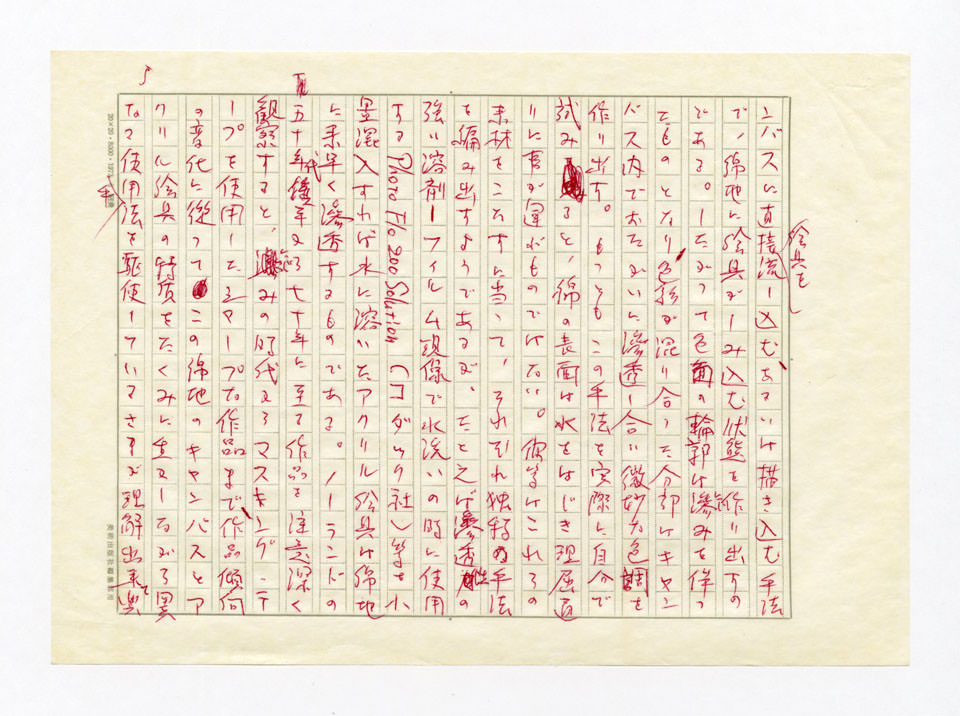 絵具を
ンバスに直接流し込むあるいは描き込む手法
で、綿地に絵具がしみ込む状態を作り出すの
である。したがって色面の輪郭は滲みを伴っ
たものとなり色彩が混り合った部分はキャン
バス内でおたがいに滲透し合い微妙な色調を
作り出す。もっともこの手法を実際に自分で
試みると、綿の表面は水をはじき理屈
りに事が運ぶものではない。彼等はこれらの
素材をこなすに当って、それぞれ独特な手法
を編み出すようであるが、たとえば滲透性の
強い溶剤―フィルム現像で水洗いの時に使用
する Photo Flo 200 Solution（コダック社）等を小
量混入すれば水に溶いたアクリル絵具は綿地
に素早く滲透するものである。ノーランドの
五十年代 七十年に至る作品を注意深く
観察すると、滲みの時代からマスキング・テ
ープを使用したシャープな作品まで、作品傾向
の変化に従ってこの綿地のキャンバスとア
クリル絵具の特質をたくみに生かしながら異
なった使用法を駆使していることまで理解出来て興
5
20×20
美術出版社編集部用